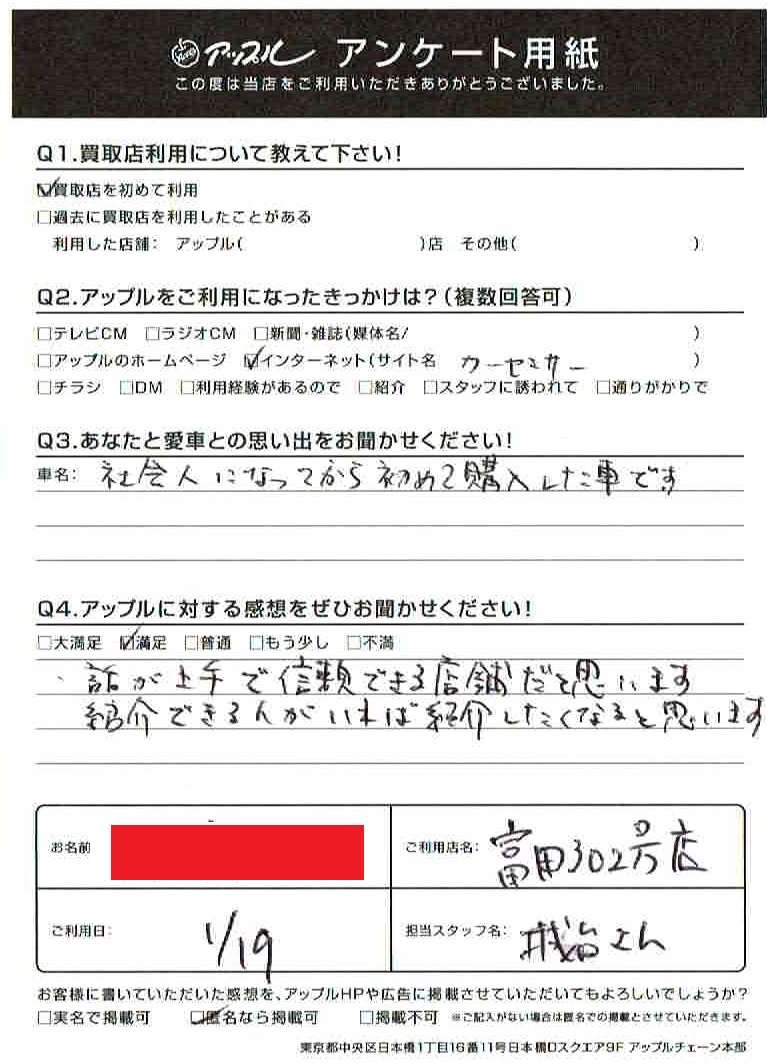 アップル アンケート用紙
この度は当店をご利用いただきありがとうございました。
Q1.買取店利用について教えて下さい!
☑買取店を初めて利用
□過去に買取店を利用したことがある
利用した店舗: アップル( )店 その他( )
Q2.アップルをご利用になったきっかけは?(複数回答可)
□テレビCM □ラジオCM □新聞・雑誌(媒体名/ )
□アップルのホームページ ☑インターネット(サイト名 カーセンサー )
□チラシ □DM □利用経験があるので □紹介 □スタッフに誘われて □通りがかりで
Q3.あなたと愛車との思い出をお聞かせください!
車名: 社会人になってから初めて購入した車です
Q4.アップルに対する感想をぜひお聞かせください!
□大満足 ☑満足 □普通 □もう少し □不満
・話が上手で信頼できる店舗だと思います
紹介できる人がいれば紹介したくなると思います
お名前
ご利用店名: 富田302号店
ご利用日: 1/19
担当スタッフ名: さん
お客様に書いていただいた感想を、アップルHPや広告に掲載させていただいてもよろしいでしょうか?
□実名で掲載可 ☑匿名なら掲載可 □掲載不可 ※ご記入がない場合は匿名での掲載とさせていただきます。
東京都中央区日本橋1丁目16番11号日本橋Dスクエア9F アップルチェーン本部